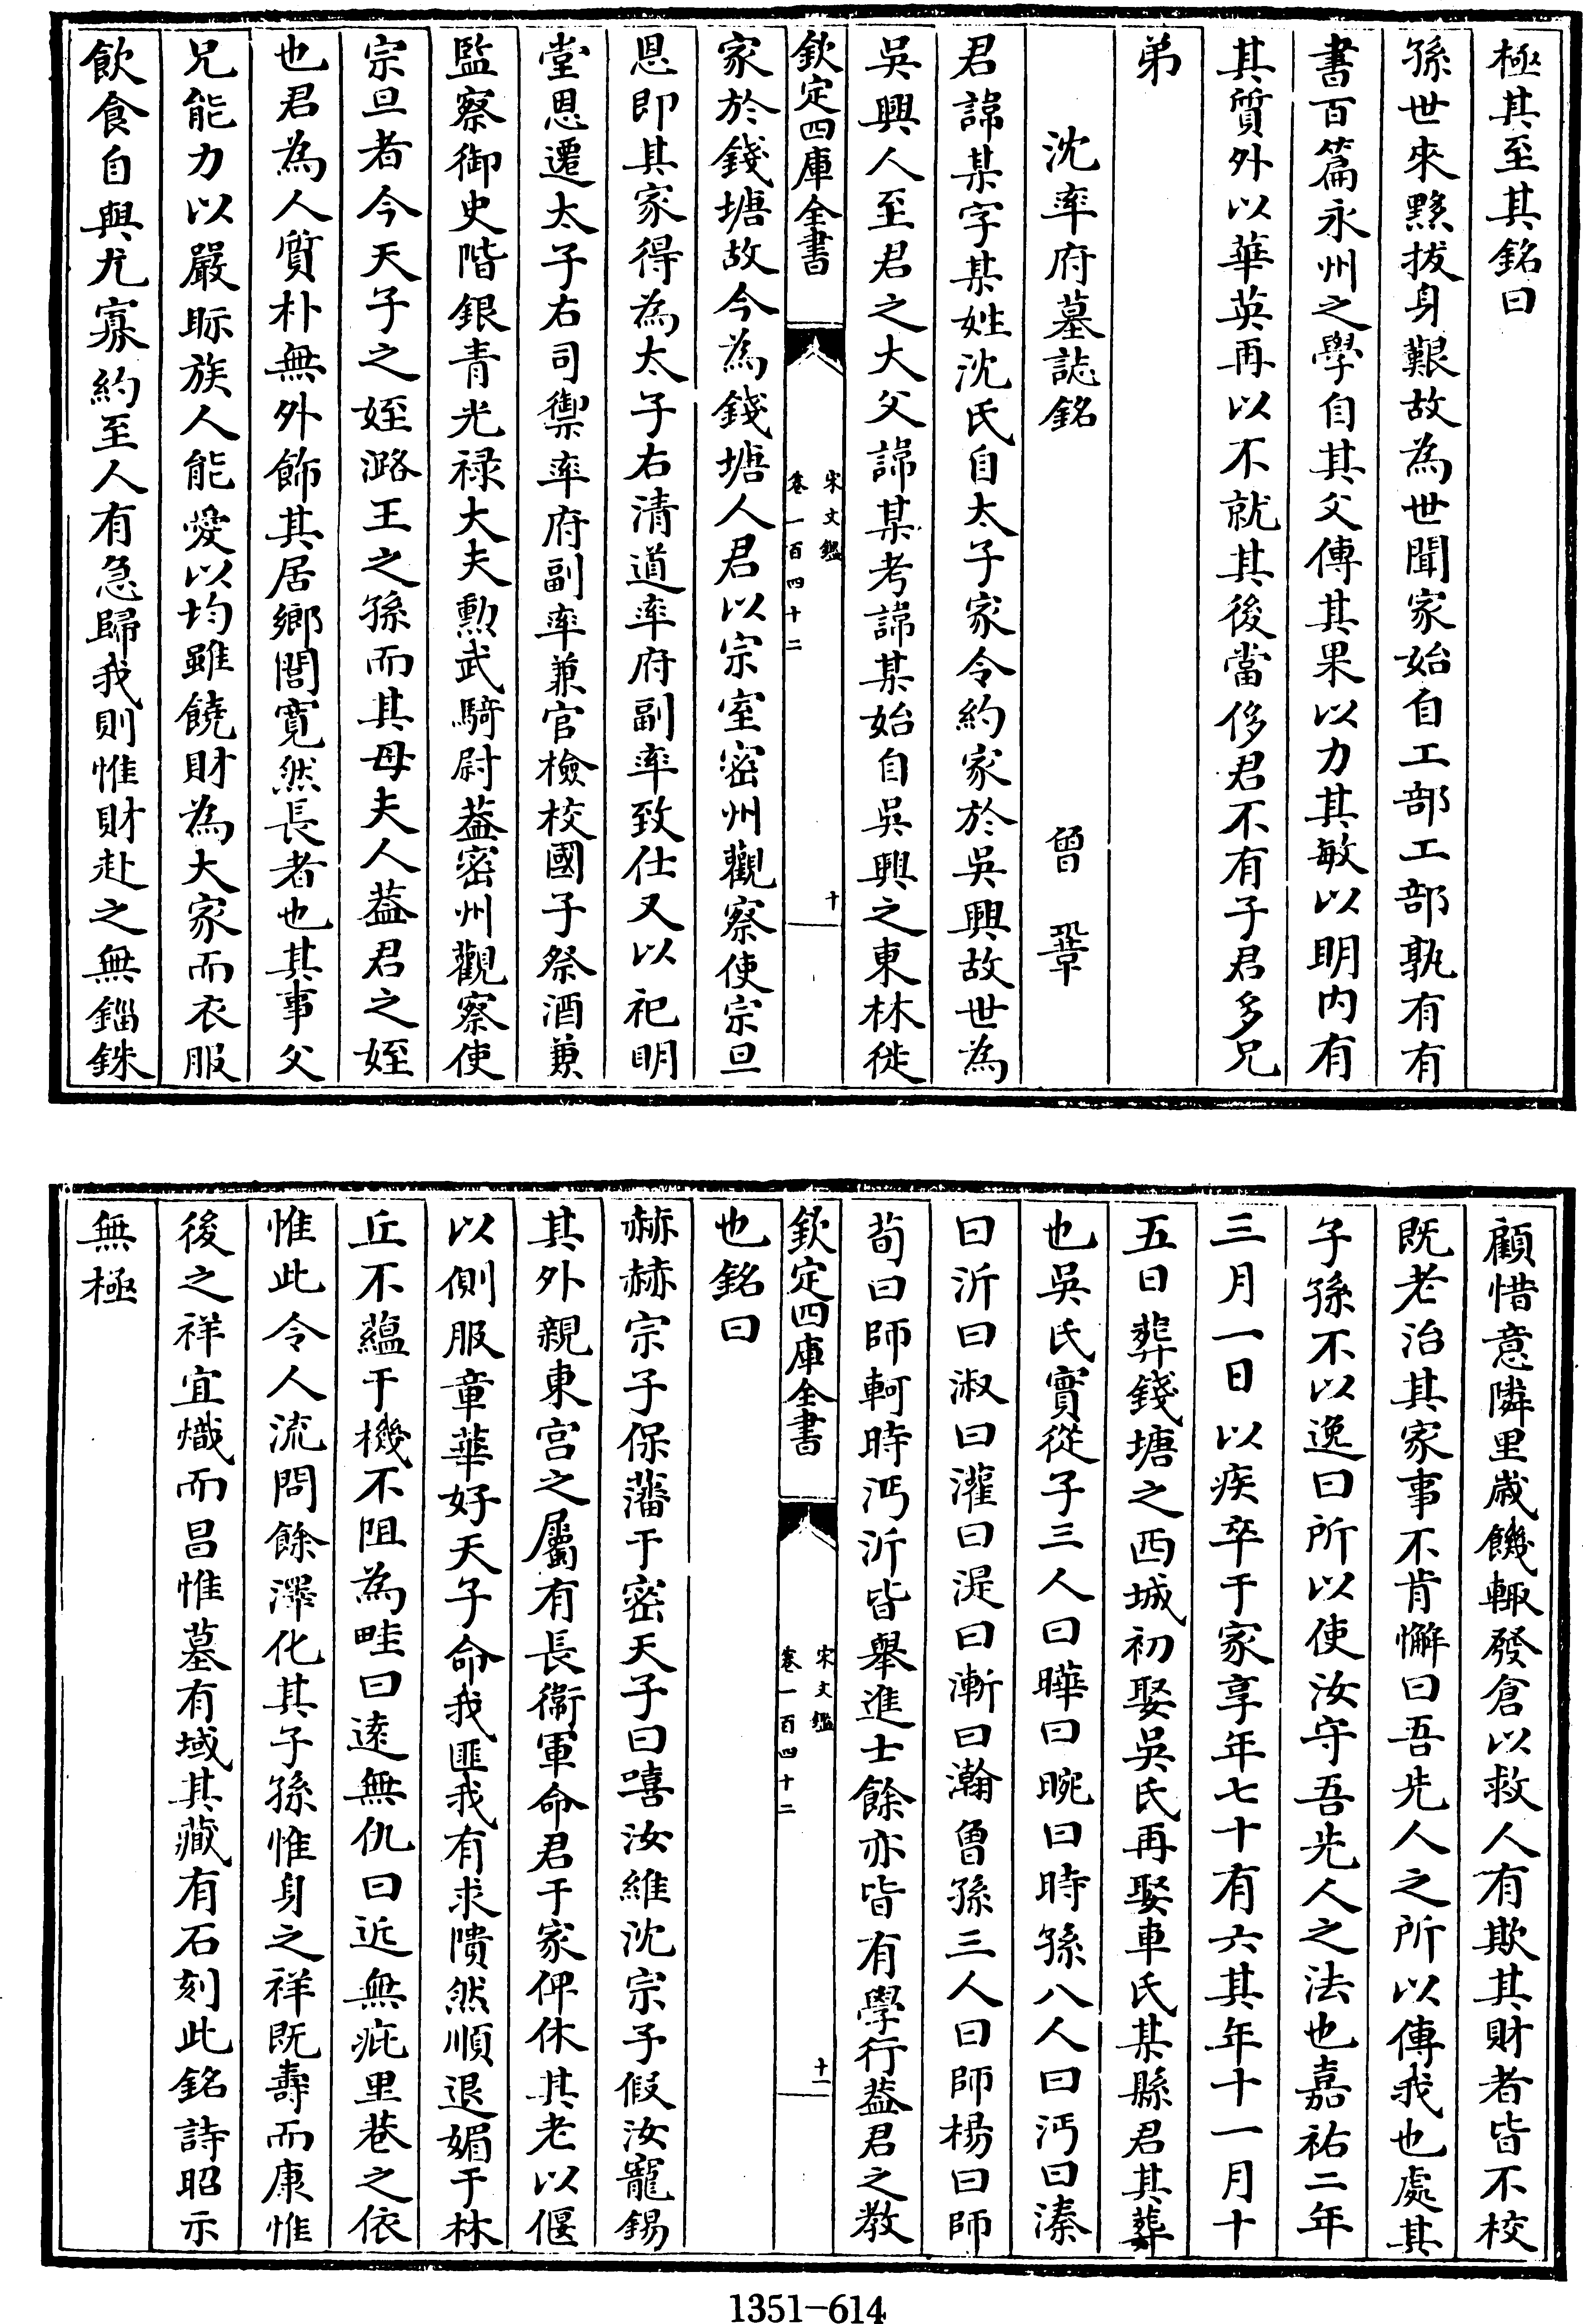 極其至其銘曰
孫世來黟拔身艱故為世聞家始自工部工部孰有有
書百篇永州之學自其父傳其果以力其敏以明内有
其質外以華英再以不就其後當侈君不有子君多兄
弟
沈率府墓誌銘 曾鞏
君諱某字某姓沈氏自太子家令約家於吳興故世為
吳興人至君之大父諱某考諱某始自吳興之東林徙
欽定四庫全書
宋文鑑
卷一百四十二
十
家於錢塘故今為錢塘人君以宗室密州觀察使宗旦
恩即其家得為太子右清道率府副率致仕又以祀明
堂恩遷太子右司禦率府副率兼官檢校國子祭酒兼
監察御史階銀青光禄大夫勲武騎尉葢密州觀察使
宗旦者今天子之姪潞王之孫而其母夫人葢君之姪
也君為人質朴無外飾其居鄉閭寛然長者也其事父
兄能力以嚴眎族人能愛以均雖饒財為大家而衣服
飲食自與尤寡約至人有急歸我則惟財赴之無錙銖
顧惜意隣里嵗饑輙發倉以救人有欺其財者皆不校
既老治其家事不肯懈曰吾先人之所以傳我也處其
子孫不以逸曰所以使汝守吾先人之法也嘉祐二年
三月一日以疾卒于家享年七十有六其年十一月十
五日葬錢塘之西城初娶吳氏再娶車氏某縣君其葬
也吳氏實從子三人曰曄曰晼曰時孫八人曰沔曰溱
曰沂曰淑曰灌曰湜曰漸曰瀚曾孫三人曰師楊曰師
荀曰師軻時沔沂皆舉進士餘亦皆有學行葢君之教
欽定四庫全書
宋文鑑
卷一百四十二
十一
也銘曰
赫赫宗子保藩于密天子曰嘻汝維沈宗子假汝寵錫
其外親東宫之屬有長衞軍命君于家俾休其老以偃
以側服章華好天子命我匪我有求隤然順退媚于林
丘不藴干機不阻為畦曰逺無仇曰近無疵里巷之依
惟此令人流問餘澤化其子孫惟身之祥既壽而康惟
後之祥宜熾而昌惟墓有域其藏有石刻此銘詩昭示
無極
1351-614